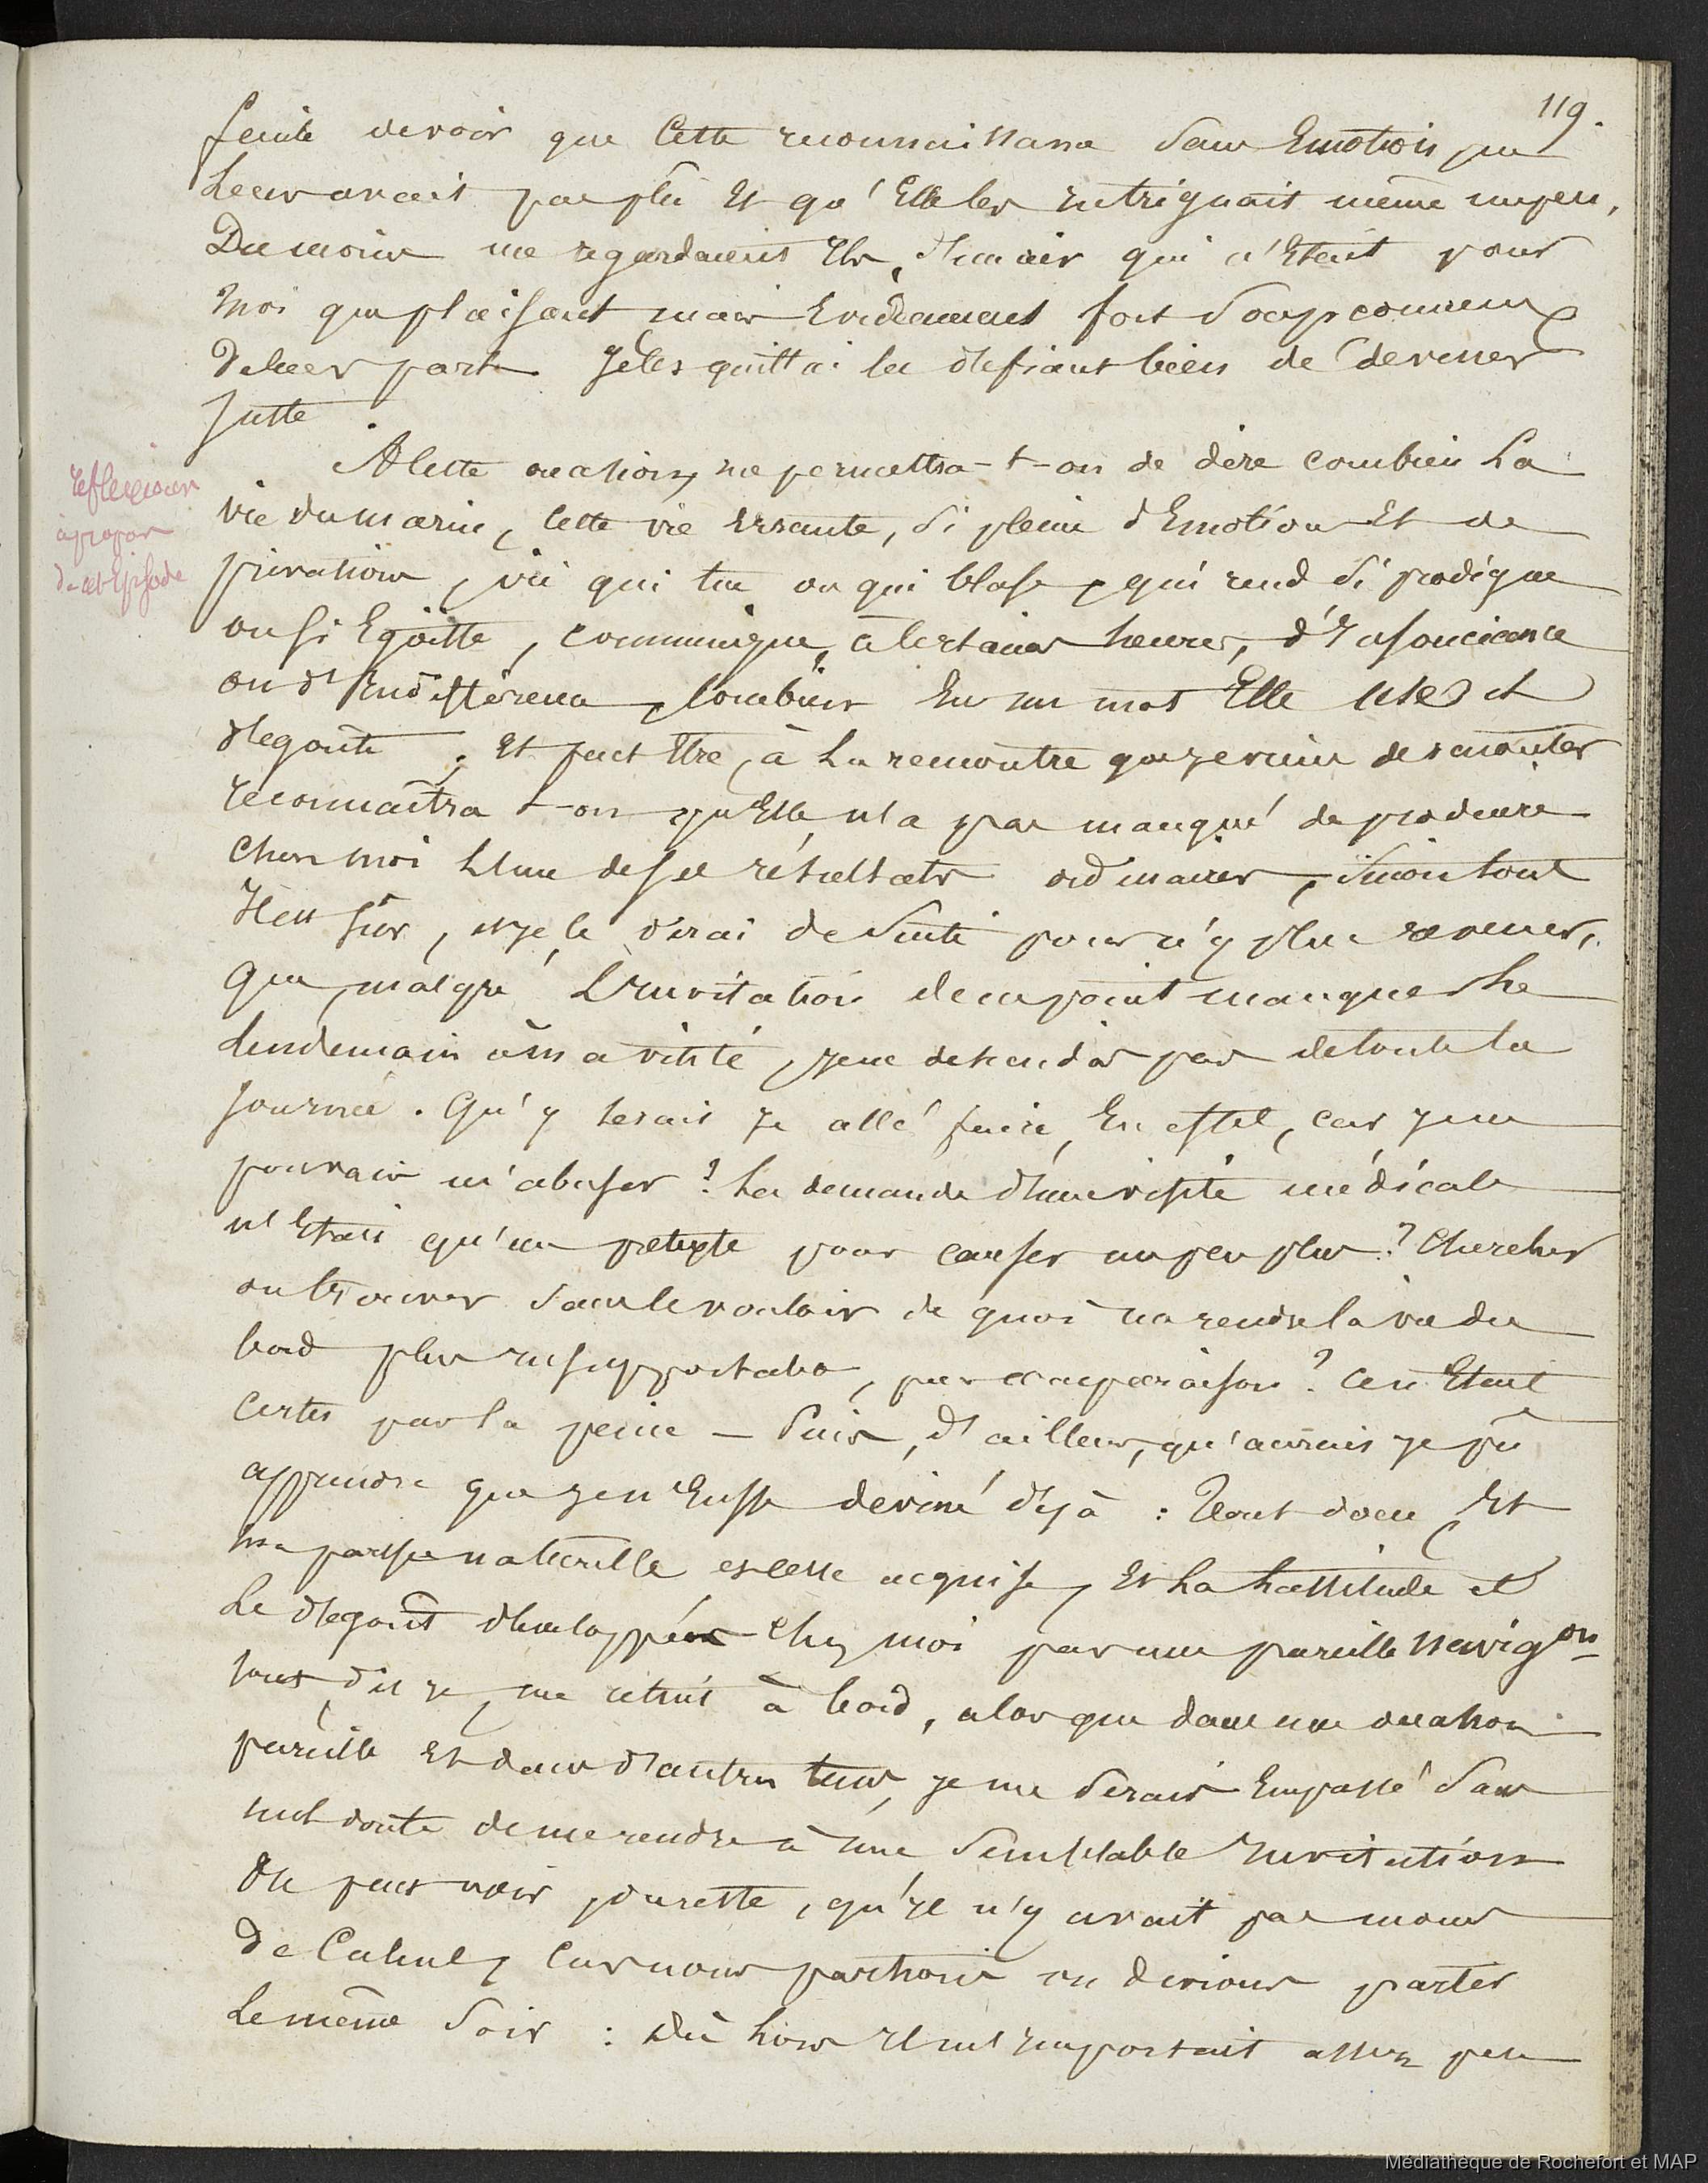 119.
facile de voir que cette reconnaissance sans Emotion ne
Leur avait pas plû Et qu'Elle les intriguait même un peu,
Du moins me regardaient Ils, d'un air qui n'Etait pour
moi que plaisant mais Evidemment fort soupçonneux
De leur part. Je les quittai les defiant bien de deviner
juste.
A cette occasion, me permettra-t-on de dire combien La
vie du marin, cette vie Errante, si pleine d'Emotions Et de
privations, vie qui tue ou qui blase, qui rend si prodigue
ou si Egoïste, communique, à certaines heures, d'Insouciance
ou d'Indifférence, combien En un mot Elle use et
dégoute ; Et peut Etre, à La rencontre que je viens de raconter
reconnaitra-t-on qu'Elle n'a pas manqué de produire
chez moi L'un de ses résultats ordinaires,
Il est sûr, et je le dirai de suite pour n'y plus revenir,
que, malgré L'Invitation de ne point manquer Le
Lendemain à ma visite, je ne descendis pas de toute la
journée. Qu'y serais je allé faire, En effet, car je ne
pouvais m'abuser ? La demande d'une visite médicale
n'Etait qu'un prétexte pour causer un peu plus ? Chercher
ou trouver sans le vouloir de quoi me rendre la vie du
bord plus Insupportable, par comparaison ? Ce n'Etait
certes pas la peine – Puis, d'ailleurs, qu'aurais je pû
apprendre que je n'Eusse deviné déjà : Tout donc, Et
ma paresse naturelle et celle acquise, Et La Lassitude et
Le dégoût développés chez moi par une pareille navig^on
tout, dis je, me retint à bord, alors que dans une occasion
pareille Et dans d'autres tems, je me serais Empressé sans
nul doute de me rendre à une semblable Invitation
On peut voir, du reste, qu'Il n'y avait pas moins
De Calcul, car nous partions ou devions partir
Le même soir : Dès Lors Il m'Importait assez peu
reflexions
à propos
de cet Episode
Médiathèque de Rochefort et MAP